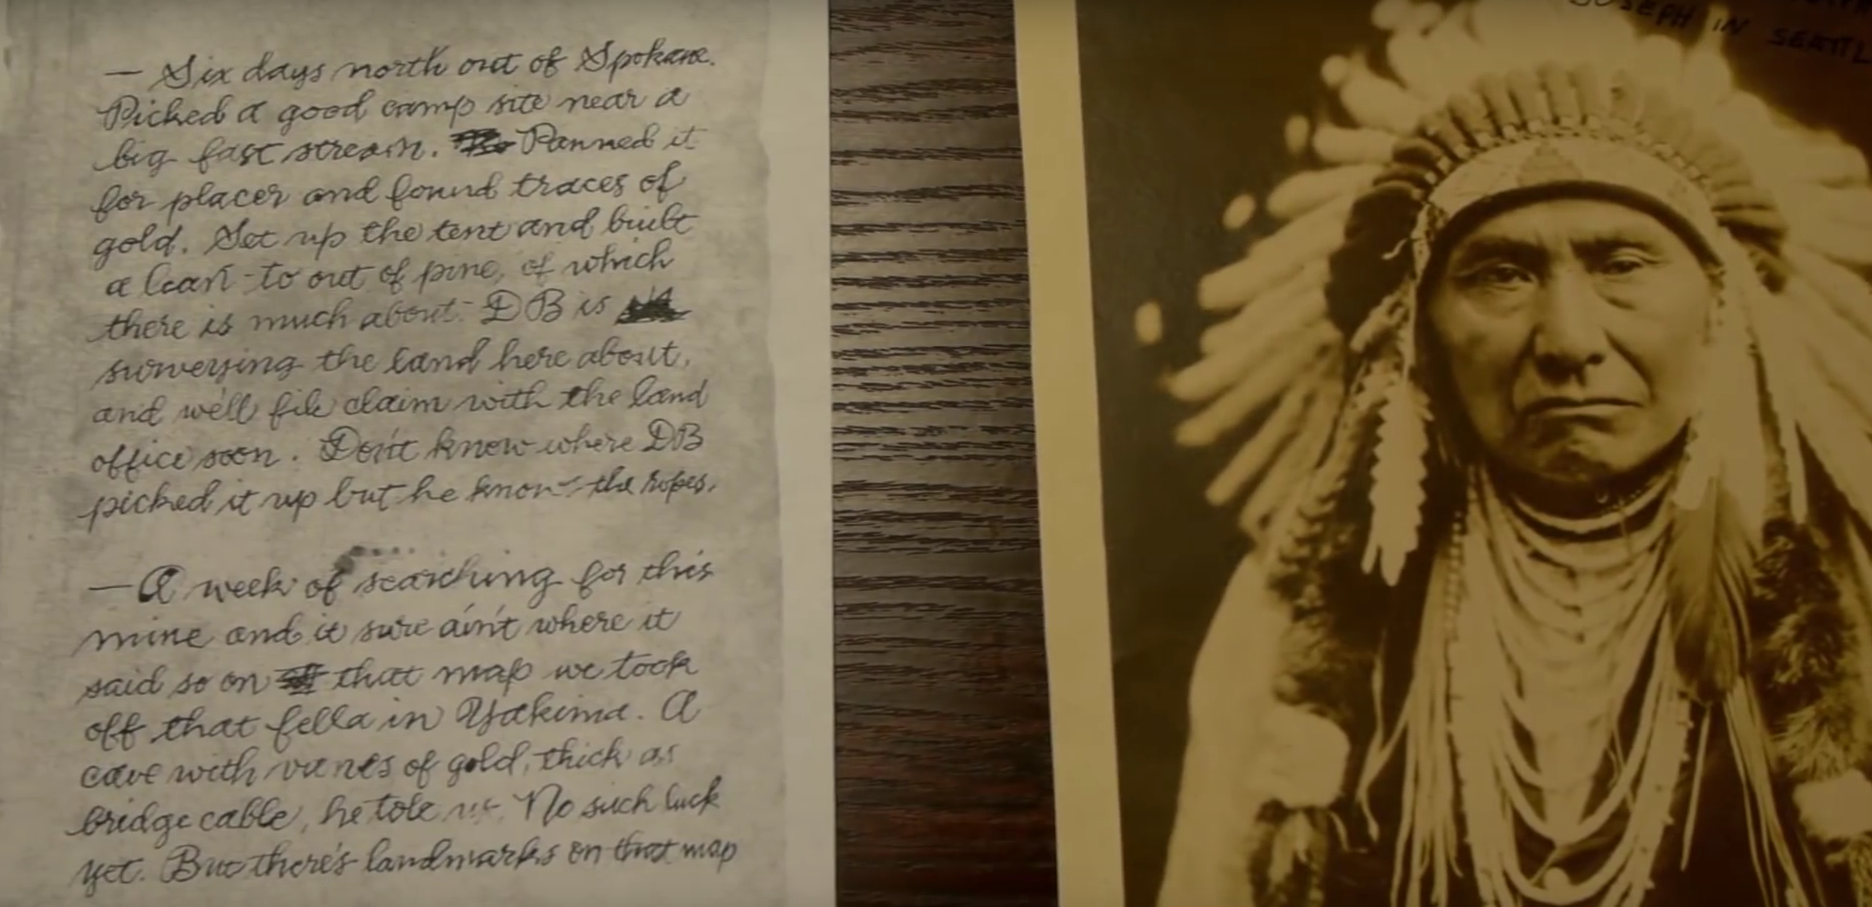 — Six days north out of Spokane.
Picked a good camp site near a
big fast stream. Panned it
for placer and found traces of
gold. Set up the tent and built
a lean-to out of pine, of which
there is much about. DB is
surveying the land here about,
and we'll file claim with the land
office soon. Don't know where DB
picked it up but he knows the ropes.
— A week of searching for this
mine and it sure ain't where it
said so on that map we took
off that fella in Yakima. A
cave with vanes of gold, thick as
bridge cable, he tole us. No such luck
yet. But there's landmarks on that map
JOSEPH IN SEATTL